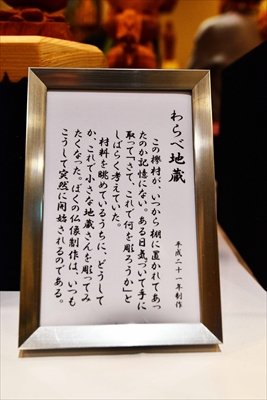 わらべ地蔵
平成二十一年制作
この欅材が、いつから棚に置かれてあっ
たのか記憶にない。ある日気づいて手に
取って「さて、これで何を彫ろうか」と
しばらく考えていた。
材料を眺めているうちに、どうして
か、これで小さな地蔵さんを彫ってみ
たくなった。ぼくの仏像制作は、いつも
こうして突然に開始されるのである。